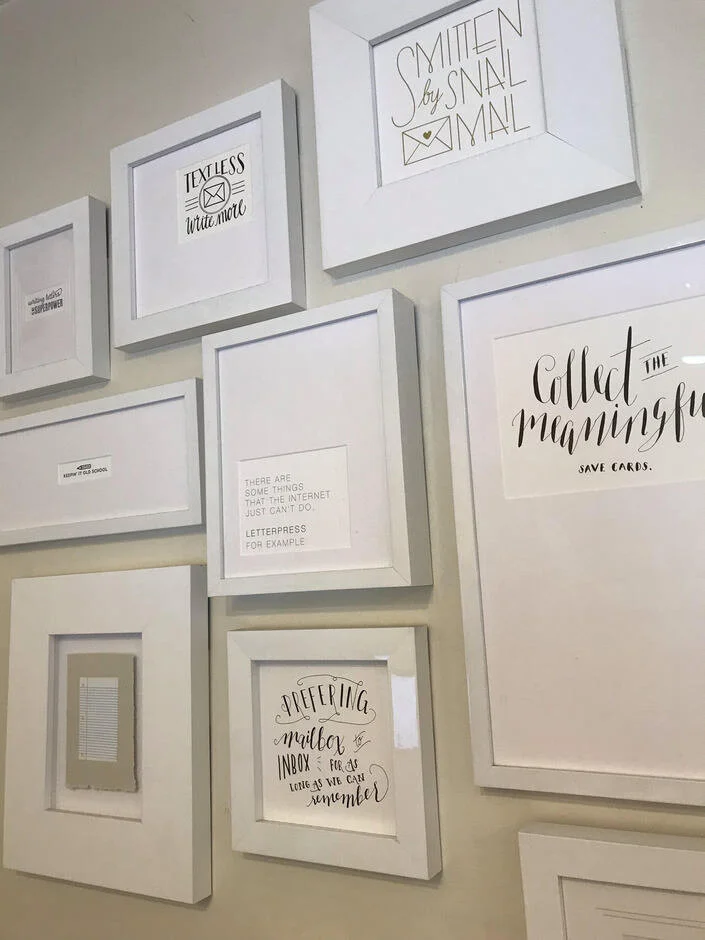 SMITTEN
by SNAIL
MAIL
TEXT LESS
Write more
writing letters
SUPERPOWER
Collect THE
meaningfu
SAVE CARDS.
KEEPIN' IT OLD SCHOOL
THERE ARE
SOME THINGS
THAT THE INTERNET
JUST CAN'T DO,
LETTERPRESS
FOR EXAMPLE
PREFERING
mailbox to
INBOX FOR AS
LONG AS WE CAN
remember